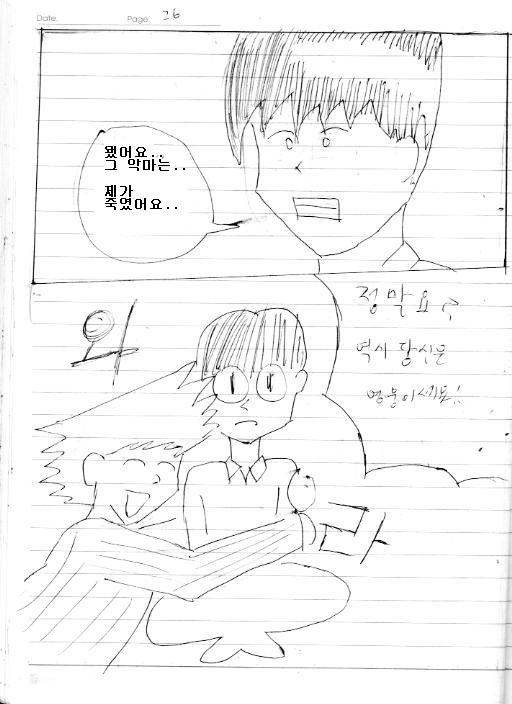 Date.
Page: 26
됐어요..
그 악마는..
제가
죽였어요..
정말요?
역시 당신은
영웅이세요!
와
락